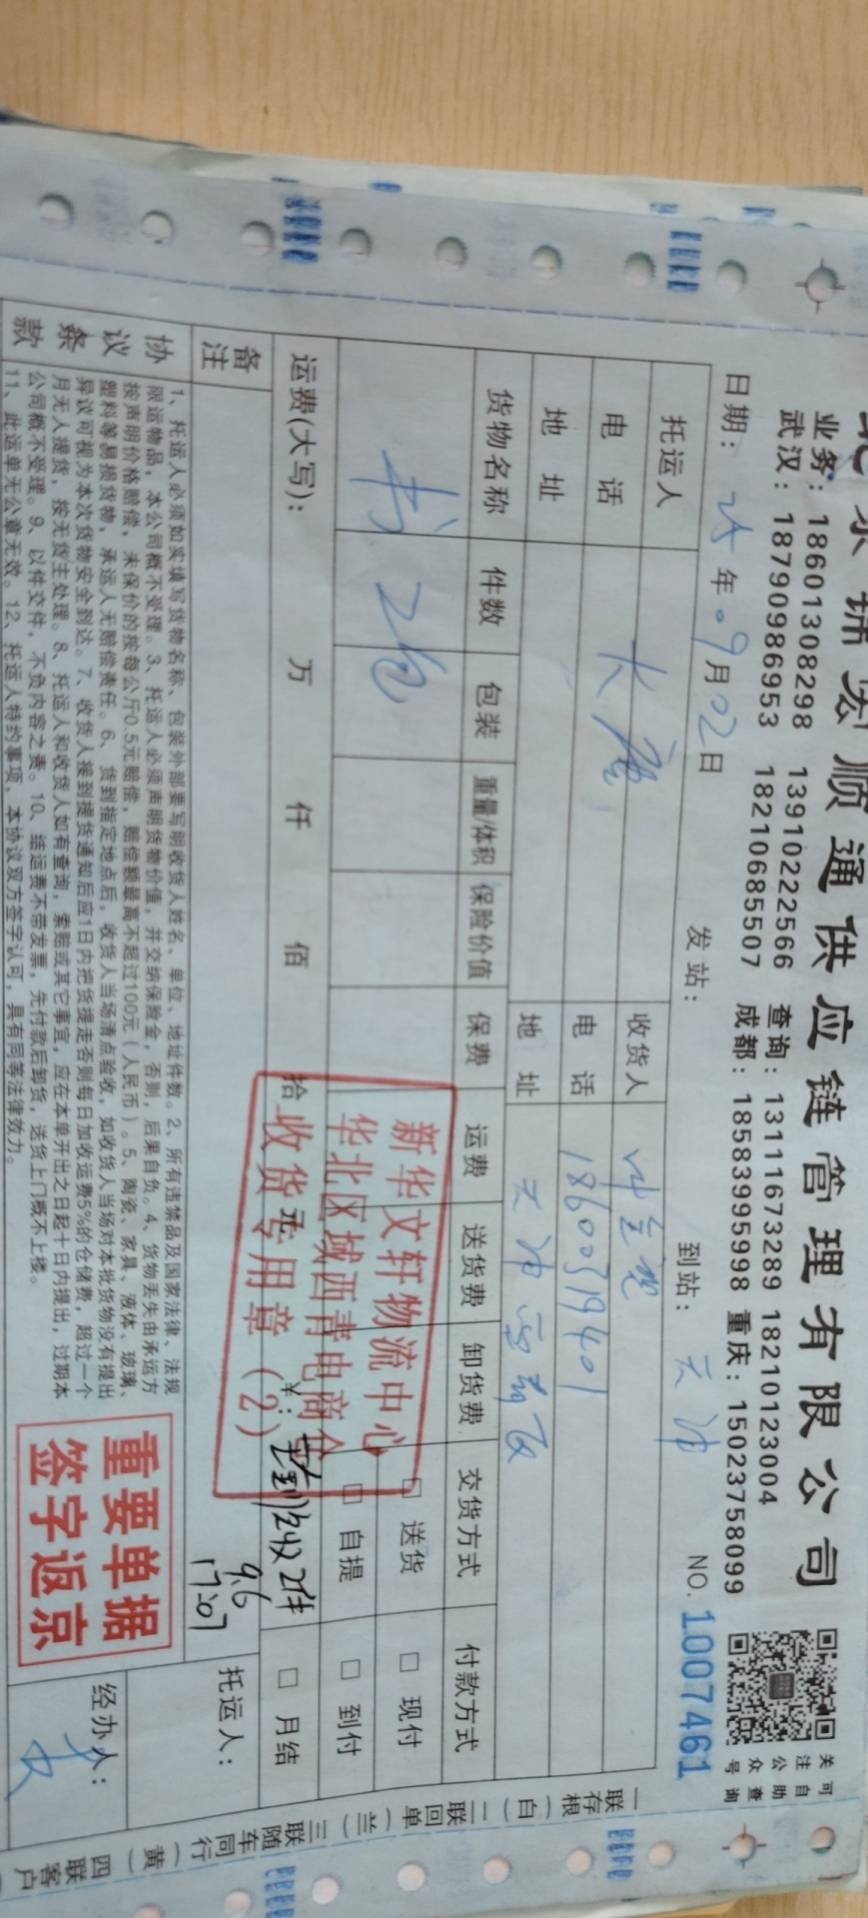 顺通供应链管理有限公司
业务：18601308298 13910222566 查询：13111673289 18210123004
武汉：18790986953 18210685507 成都：18583995998 重庆：15023758099
关注公众号
可自助查询
日期：25年09月02日 发站： 到站：天津 NO.1007461
托运人 大唐 收货人
电话 电话 18600319401
地址 地址 天津西青区
货物名称 件数 包装 重量/体积 保险价值 保费 运费 送货费 卸货费 交货方式 付款方式
书 2包 □送货 □现付
□自提 □到付
运费(大写)： 万 仟 佰 拾 元 ¥： □月结
实到实收2件
9.6
17:07
新华文轩物流中心
华北区域西青电商仓
收货专用章（2）
备注
托运人：
协议条款
1、托运人必须如实填写货物名称、包装外部要写明收货人姓名、单位、地址件数。2、所有违禁品及国家法律、法规
限运物品，本公司概不受理。3、托运人必须声明货物价值，并交纳保险金，否则，后果自负。4、货物丢失由承运方
按声明价格赔偿，未保价的按每公斤0.5元赔偿，赔偿额最高不超过100元（人民币）。5、陶瓷、家具、液体、玻璃、
塑料等易损货物，承运人无赔偿责任。6、货到指定地点后，收货人当场清点验收，如收货人当场对本批货物没有提出
异议可视为本次货物安全到达。7、收货人接到提货通知后应1日内把货提走否则每日加收运费5%的仓储费，超过一个
月无人提货，按无货主处理。8、托运人和收货人如有查询，索赔或其它事宜，应在本单开出之日起十日内提出，过期本
公司概不受理。9、以件交件，不负内容之责。10、结运费不带发票，先付款后卸货，送货上门概不上楼。
11、此运单无公章无效。12、托运人特约事项，本协议双方签字认可，具有同等法律效力。
重要单据
签字返京
经办人：
一联存根（白） 二联回单（兰） 三联随车同行（黄） 四联客户